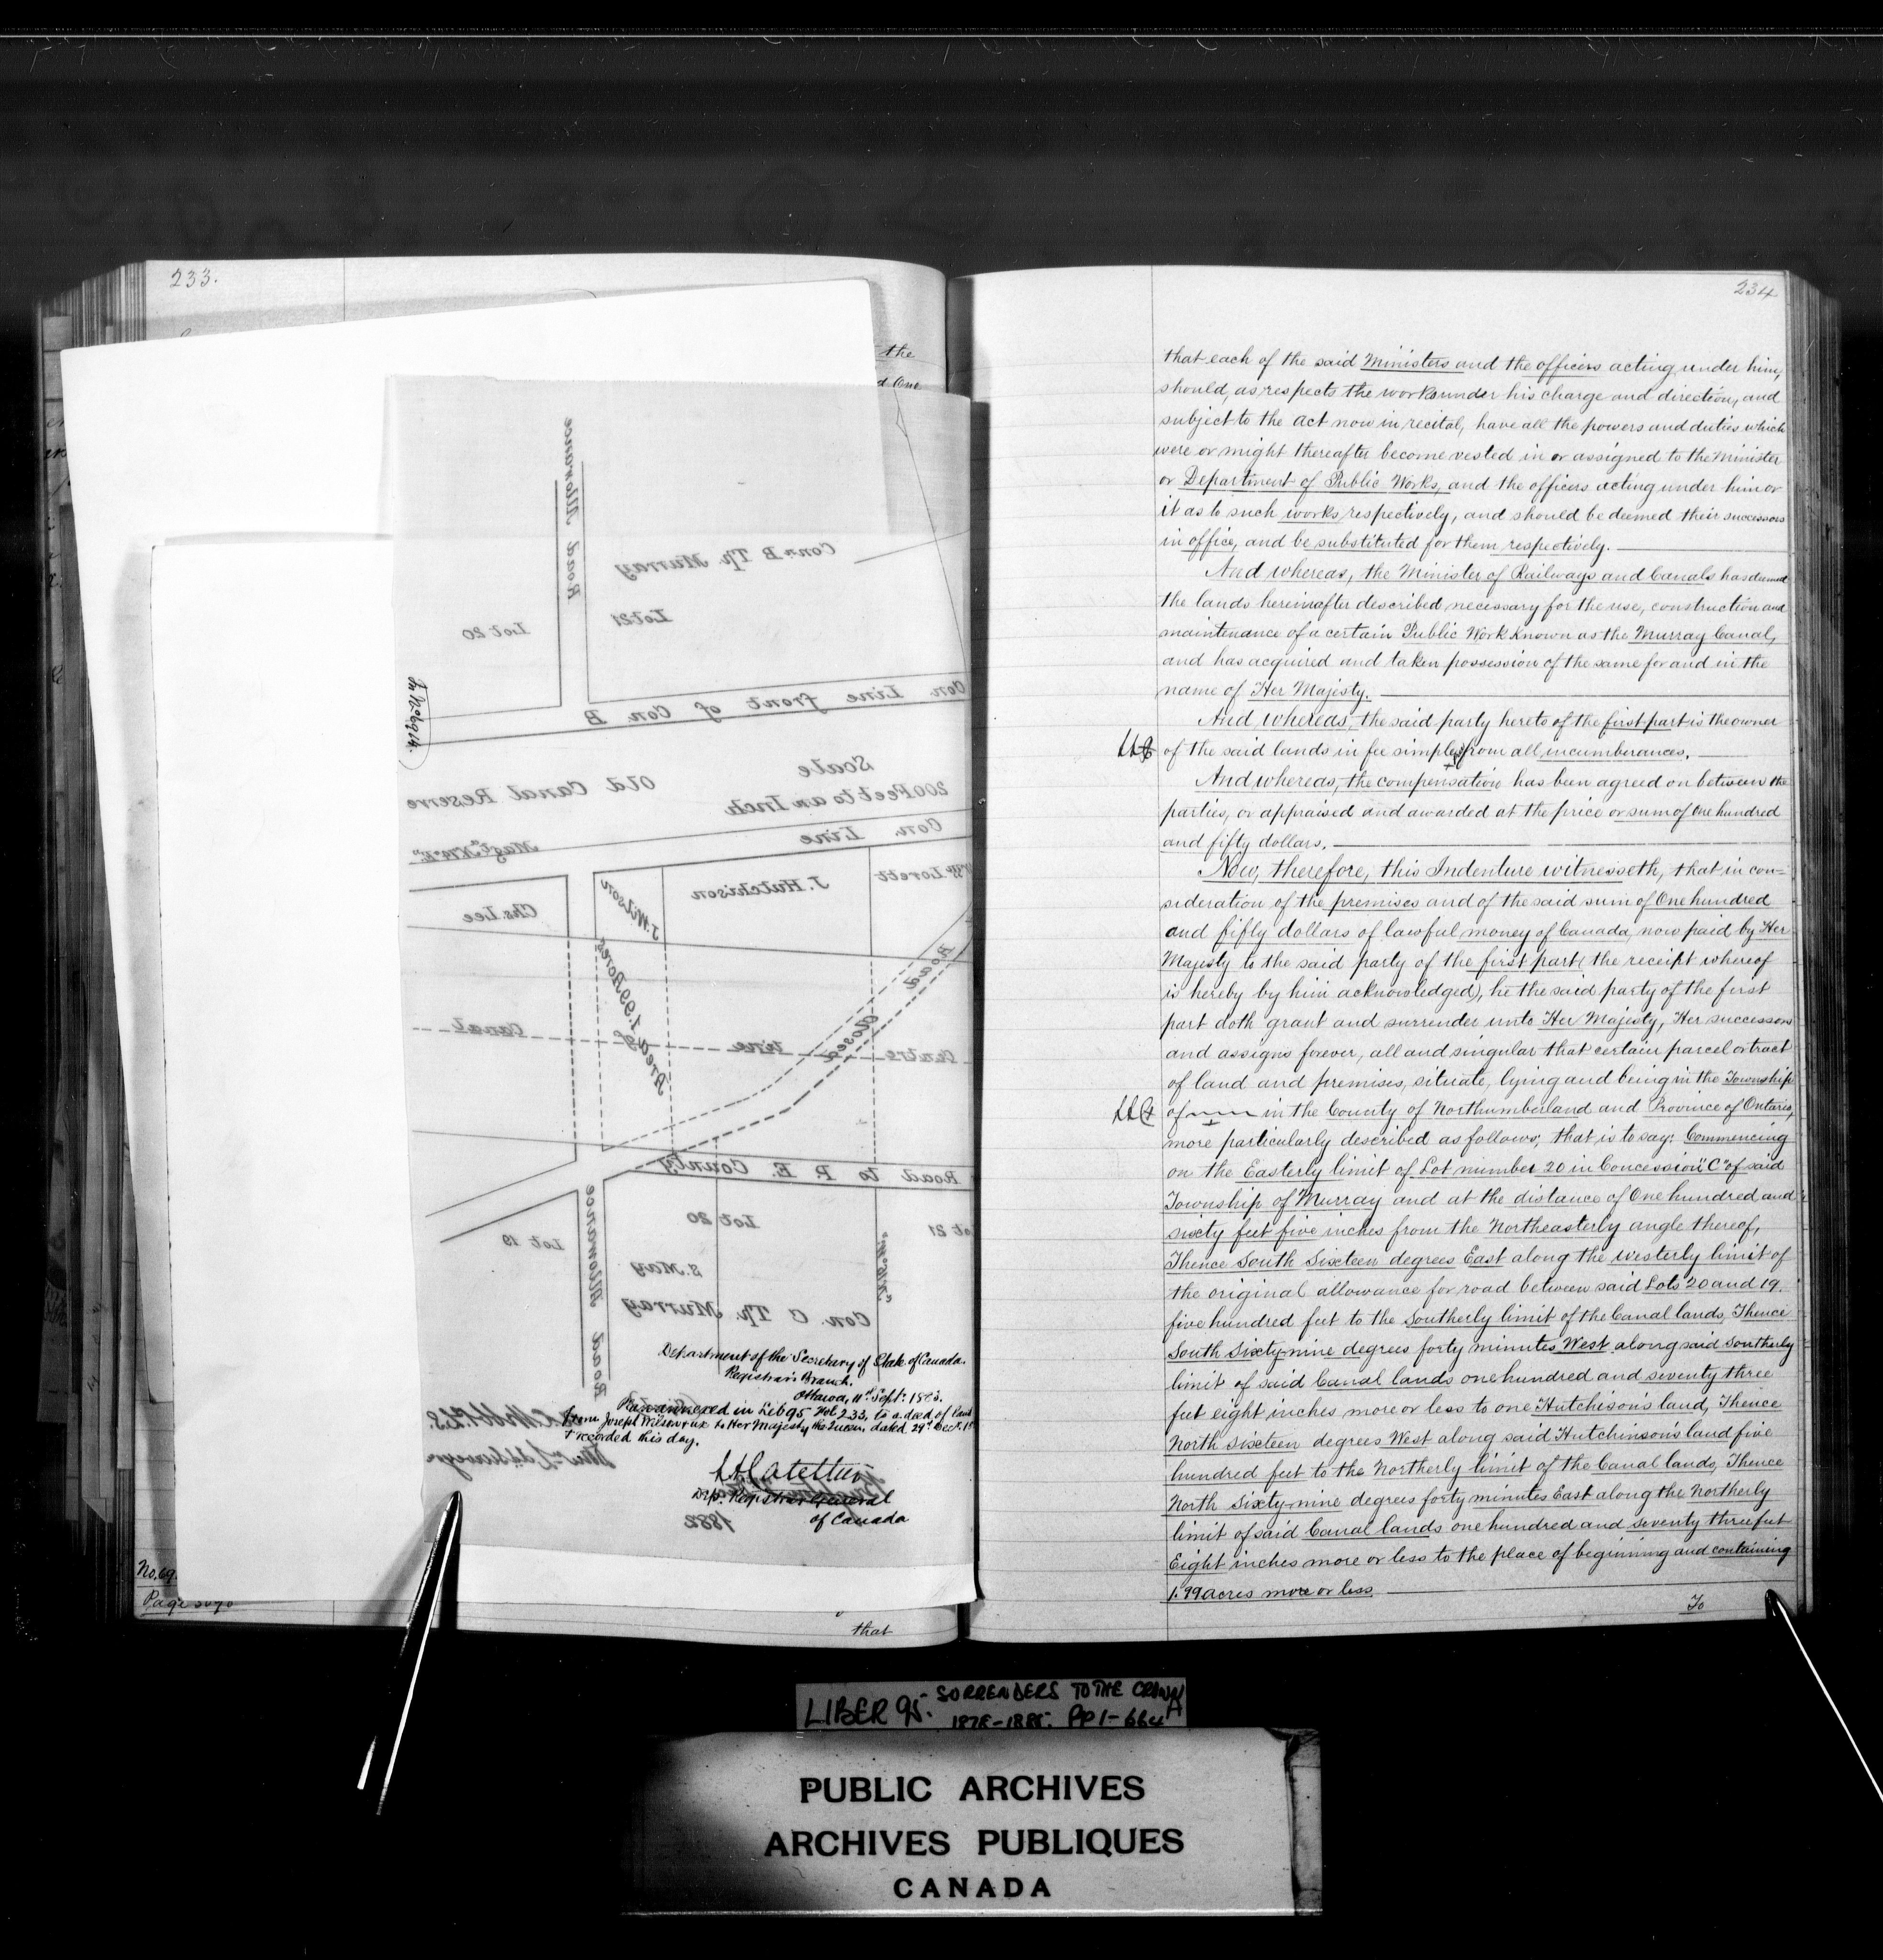 233.
the
d One
Road Allowance
Con. B Tp. Murray
Lot 21
Lot 20
Con Line front of Con B
Scale
200 Feet to an Inch
Old Canal Reserve
Con. Line
J. Hutchison
J. Wilson
Chs. Lee
Road
Area of 1.99 Acres
Closed
Centre line Canal
Road to P. E. County
Lot 21
Lot 20
Lot 19
S. May
Con. C Tp. Murray
Road Allowance
Department of the Secretary of State of Canada.
Registrar's Branch.
Ottawa, 11th Sept. 1883.
Plan annexed in Lib 95 Fol. 233, to a deed of land
from Joseph Wilson & ux to Her Majesty the Queen, dated 29th Dec.
& recorded this day.
Dep. Registrar General
of Canada
1882
No. 69
Page
that
234
that each of the said Ministers and the officers acting under him,
should, as respects the works under his charge and direction, and
subject to the Act now in recital, have all the powers and duties which
were or might thereafter become vested in or assigned to the Minister
or Department of Public Works, and the officers acting under him or
it as to such works respectively, and should be deemed their successors
in office, and be substituted for them respectively.
And whereas, the Minister of Railways and Canals has deemed
the lands hereinafter described necessary for the use, construction and
maintenance of a certain Public Work known as the Murray Canal,
and has acquired and taken possession of the same for and in the
name of Her Majesty.
And whereas, the said party hereto of the first part is the owner
of the said lands in fee simple from all incumberances.
And whereas, the compensation has been agreed on between the
parties, or appraised and awarded at the price or sum of One hundred
and fifty dollars.
Now, therefore, this Indenture witnesseth, that in con=
sideration of the premises and of the said sum of One hundred
and fifty dollars of lawful money of Canada, now paid by Her
Majesty to the said party of the first part (the receipt whereof
is hereby by him acknowledged), he the said party of the first
part doth grant and surrender unto Her Majesty, Her successors
and assigns forever, all and singular that certain parcel or tract
of land and premises, situate, lying and being in the Township
of in the County of Northumberland and Province of Ontario,
more particularly described as follows; that is to say: Commencing
on the Easterly limit of Lot number 20 in Concession "C" of said
Township of Murray and at the distance of One hundred and
sixty feet five inches from the Northeasterly angle thereof,
Thence South Sixteen degrees East along the westerly limit of
the original allowance for road between said Lots 20 and 19.
five hundred feet to the Southerly limit of the Canal lands, Thence
South Sixty-nine degrees forty minutes West along said Southerly
limit of said Canal lands one hundred and seventy three
feet eight inches more or less to one Hutchison's land, Thence
North Sixteen degrees West along said Hutchinson's land five
hundred feet to the Northerly limit of the Canal lands, Thence
North Sixty-nine degrees forty minutes East along the Northerly
limit of said Canal lands one hundred and seventy three feet
Eight inches more or less to the place of beginning and containing
1.99 acres more or less
To
LIBER 95. SURRENDERS TO THE CROWN
1878-1885. PP 1-664 A
PUBLIC ARCHIVES
ARCHIVES PUBLIQUES
CANADA